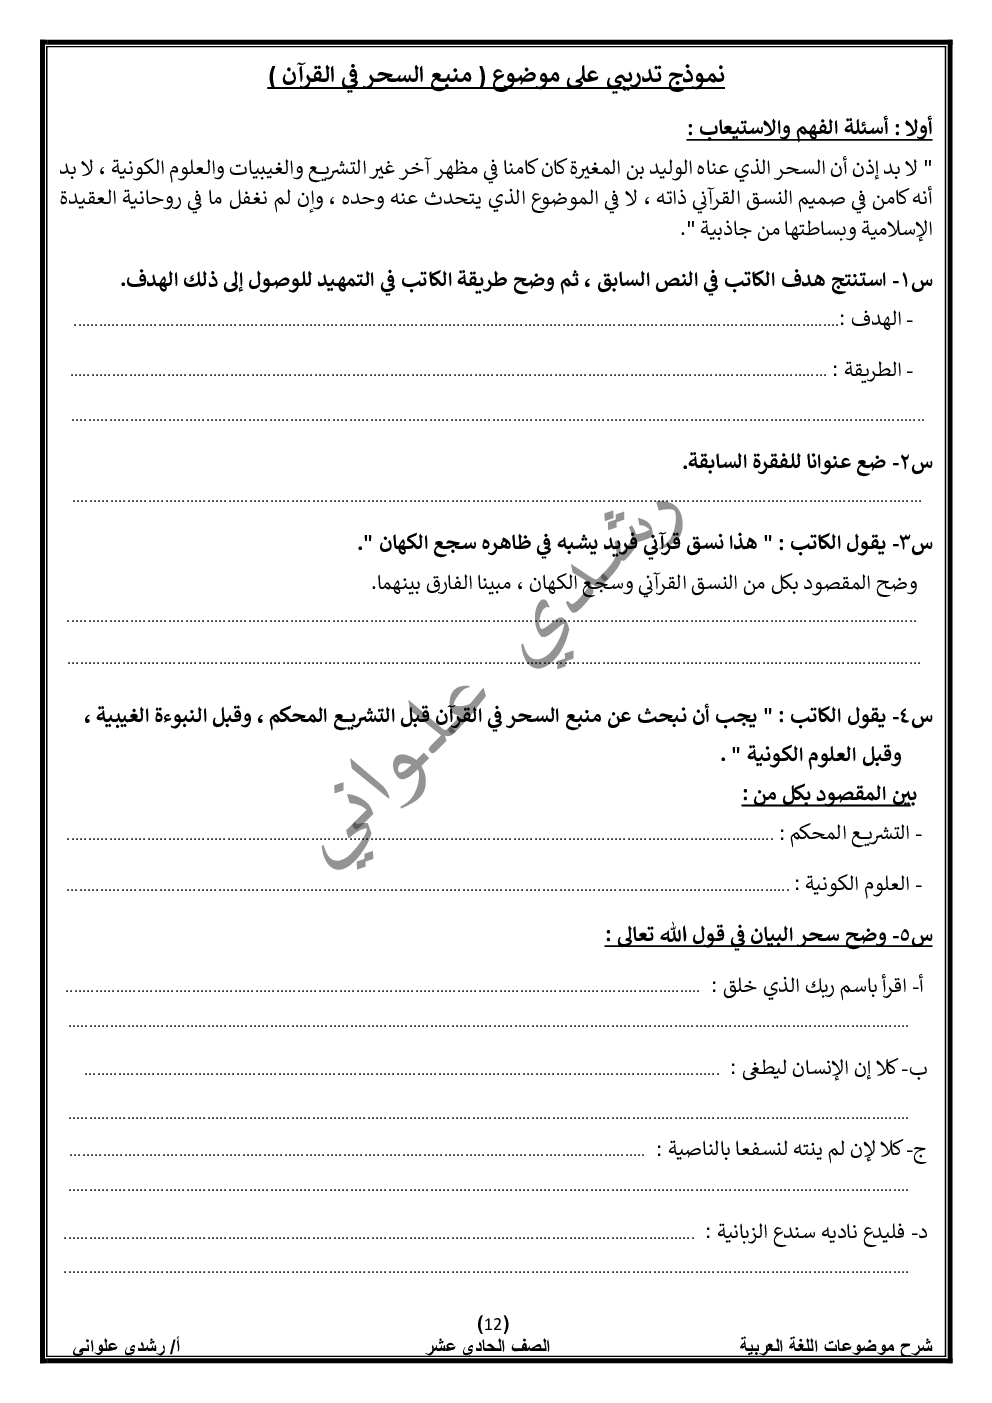 نموذج تدريبي على موضوع ( منبع السحر في القرآن )
أولا : أسئلة الفهم والاستيعاب :
" لا بد إذن أن السحر الذي عناه الوليد بن المغيرة كان كامنا في مظهر آخر غير التشريع والغيبيات والعلوم الكونية ، لا بد
أنه كامن في صميم النسق القرآني ذاته ، لا في الموضوع الذي يتحدث عنه وحده ، وإن لم نغفل ما في روحانية العقيدة
الإسلامية وبساطتها من جاذبية ".
س١- استنتج هدف الكاتب في النص السابق ، ثم وضح طريقة الكاتب في التمهيد للوصول إلى ذلك الهدف.
- الهدف :
- الطريقة :
س٢- ضع عنوانا للفقرة السابقة.
س٣- يقول الكاتب : " هذا نسق قرآني فريد يشبه في ظاهره سجع الكهان ".
وضح المقصود بكل من النسق القرآني وسجع الكهان ، مبينا الفارق بينهما.
س٤- يقول الكاتب : " يجب أن نبحث عن منبع السحر في القرآن قبل التشريع المحكم ، وقبل النبوءة الغيبية ،
وقبل العلوم الكونية " .
بين المقصود بكل من :
- التشريع المحكم :
- العلوم الكونية :
س٥- وضح سحر البيان في قول الله تعالى :
أ- اقرأ باسم ربك الذي خلق :
ب- كلا إن الإنسان ليطغى :
ج- كلا لإن لم ينته لنسفعا بالناصية :
د- فليدع ناديه سندع الزبانية :
رشدي علواني
(12)
شرح موضوعات اللغة العربية الصف الحادي عشر أ/ رشدي علواني